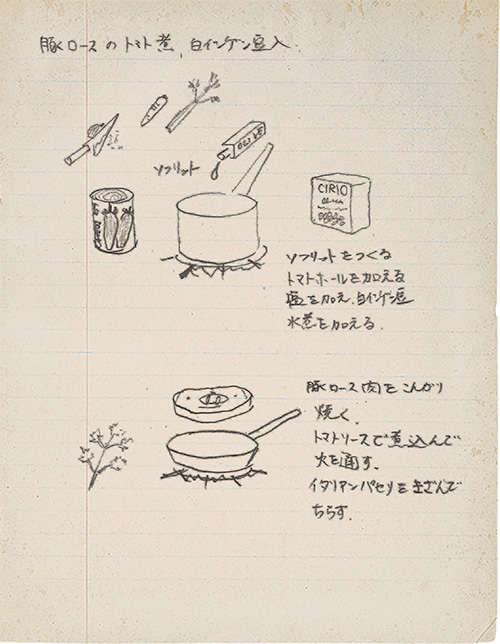 豚ロースのトマト煮、白インゲン豆入
ソフリット
OLIVE
CIRIO
ソフリットをつくる
トマトホールを加える
塩を加え、白インゲン豆
水煮を加える.
豚ロース肉をこんがり
焼く.
トマトソースで煮込んで
火を通す.
イタリアンパセリをきざんで
ちらす.